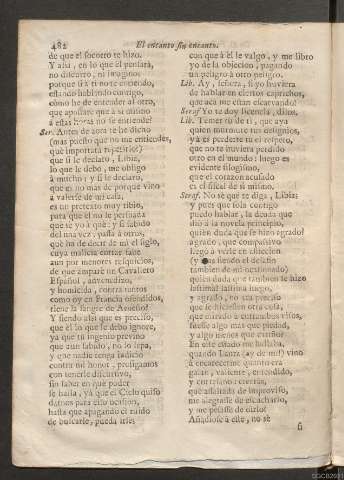 482
El encanto sin encanto.
de que el socorro te hizo.
Y assi, en lo que él pensarà,
no discurro, ni imagino:
porque si à ti no te entiendo,
estando hablando contigo,
còmo he de entender al otro,
que apostarè que à sì mismo
à estas horas no se entiende?
Ser. Antes de aora te he dicho
(mas puesto que no me entiendes,
què importarà repetirlo?)
que si le declaro, Libia,
lo que le debo, me obligo
à mucho; y si le declaro,
que es no mas de porque vino
à valerse de mi casa,
es un pretexto muy tibio,
para que èl no le persuada
que se yo à què; y si sabido
de una vez, passa à otros,
què ha de decir de mi el siglo,
cuya malicia cortar sabe
aun por menores resquicios,
de que amparè un Cavallero
Español, advenedizo,
y homicida, contra tantos
como oy en Francia ofendidos,
tiene la sangre de Arsenio?
Y siendo assi que es preciso,
que èl lo que le debo ignore,
ya que tu ingenio previno
que aun sabido, no lo sepa,
y que nadie tenga indicio
contra mi honor, prosigamos
con tenerle discursivo,
sin saber en què poder
se halla, ya que el Cielo quiso
darnos para esto ocasion,
hasta que apagando el ruido
de buscarle, pueda irse;
con que à èl le valgo, y me libro
yo de la objecion, pagando
un peligro à otro peligro.
Lib. Ay, señora, si yo huviera
de hablar en ciertos caprichos,
que acà me estàn escarvando!
Seraf. Yo te doy licencia, dilos.
Lib. Temer tù de ti, que aya
quien murmure tus designios,
yà es perderte tu el respeto,
que no te huviera perdido
otro en el mundo; luego es
evidente silogismo,
que el corazon acusado
es el fiscal de si mismo.
Seraf. No sè què te diga, Libia;
y pues que sola contigo
puedo hablar, la deuda que
diò à la novela principio,
quièn duda que se hizo agrado?
agrado, que compassivo
luego à verle en eleccion
(y siendo el desafio
tambien de mi ocasionado)
quien duda que tambien se hizo
lastima? lastima luego,
y agrado, no era preciso
que se hiciessen otra cosa,
que mirado à entrambos visos,
fuesse algo mas que piedad,
y algo menos que cariño?
En este estado me hallaba,
quando Laura (ay de mi!) vino
à encarecerme quanto era
galàn, valiente, entendido,
y cortesano: creeràs,
que assaltada de improviso,
me alegrasse de escucharlo,
y me pesasse de oirlo?
Añadiòse à este, no sè
si